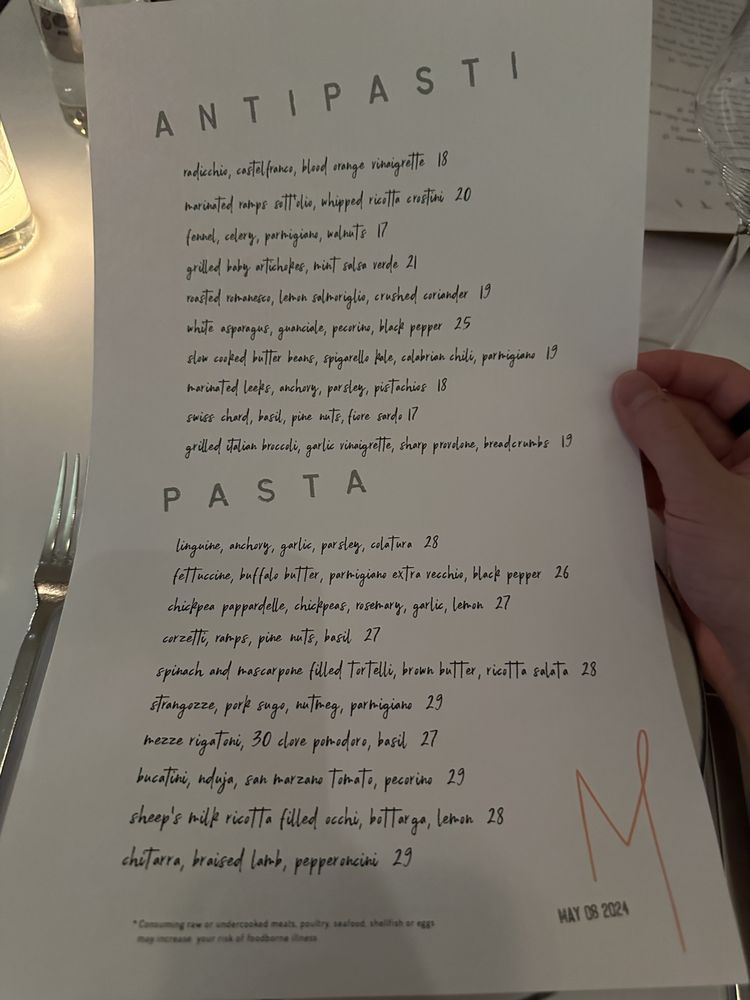 ANTIPASTI
radicchio, castelfranco, blood orange vinaigrette 18
marinated ramps sott'olio, whipped ricotta crostini 20
fennel, celery, parmigiano, walnuts 17
grilled baby artichokes, mint salsa verde 21
roasted romanesco, lemon salmoriglio, crushed coriander 19
white asparagus, guanciale, pecorino, black pepper 25
slow cooked butter beans, spigarello kale, calabrian chili, parmigiano 19
marinated leeks, anchovy, parsley, pistachios 18
swiss chard, basil, pine nuts, fiore sardo 17
grilled italian broccoli, garlic vinaigrette, sharp provolone, breadcrumbs 19
PASTA
linguine, anchovy, garlic, parsley, colatura 28
fettuccine, buffalo butter, parmigiano extra vecchio, black pepper 26
chickpea pappardelle, chickpeas, rosemary, garlic, lemon 27
corzetti, ramps, pine nuts, basil 27
spinach and mascarpone filled tortelli, brown butter, ricotta salata 28
strangozze, pork sugo, nutmeg, parmigiano 29
mezze rigatoni, 30 clove pomodoro, basil 27
bucatini, nduja, san marzano tomato, pecorino 29
sheep's milk ricotta filled occhi, bottarga, lemon 28
chitarra, braised lamb, pepperoncini 29
M
MAY 08 2024
* Consuming raw or undercooked meats, poultry, seafood, shellfish or eggs
may increase your risk of foodborne illness